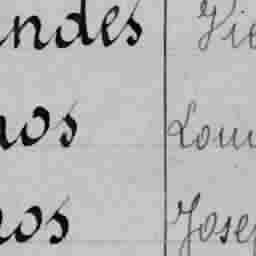 andes Vie
nos Loui
nos Josep